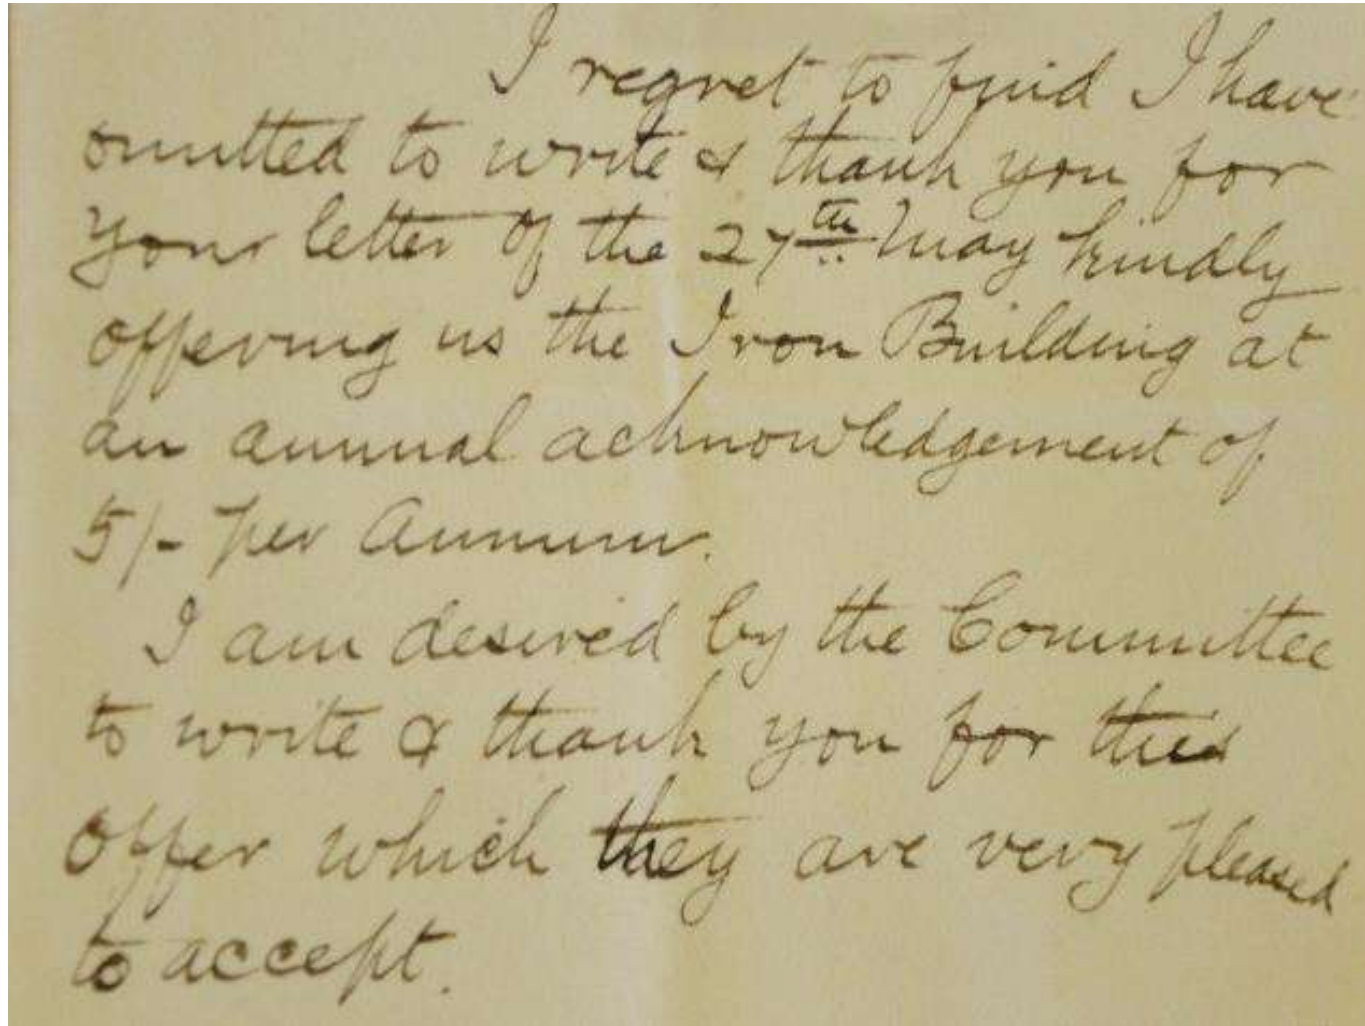 I regret to find I have
omitted to write & thank you for
your letter of the 27th May kindly
offering us the Iron Building at
an annual acknowledgement of
5/- per Annum.
I am desired by the Committee
to write & thank you for this
offer which they are very pleased
to accept.